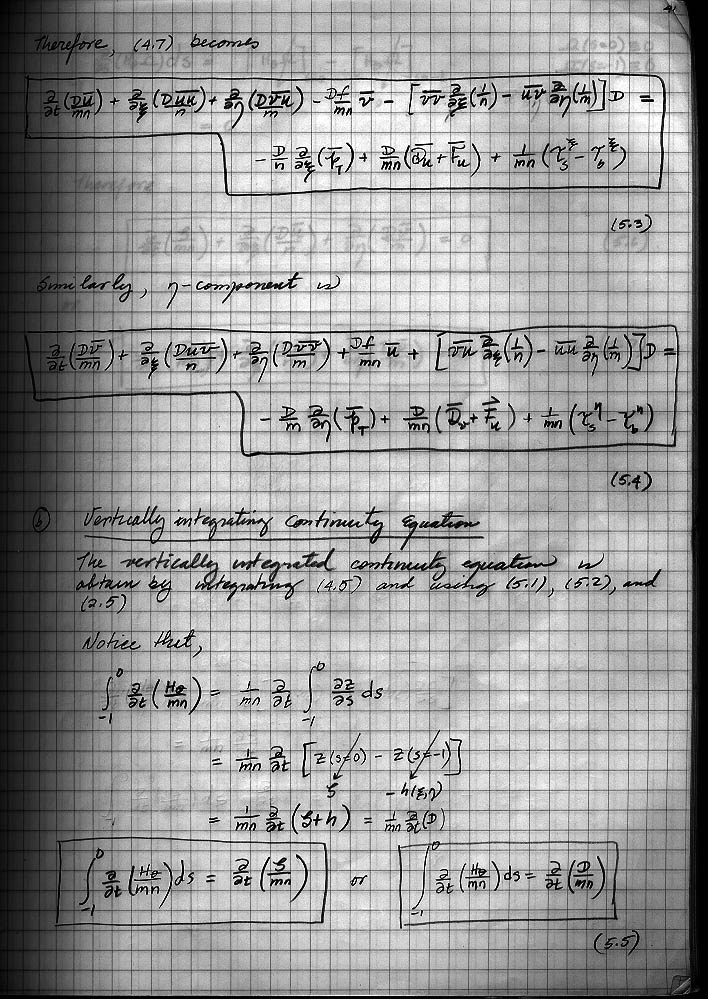 41
Therefore, (4.7) becomes
∂/∂t (Dū/mn) + ∂/∂ξ (Duū/n) + ∂/∂η (Dvū/m) − Df/mn v̄ − [v̄v̄ ∂/∂ξ (1/n) − ūv̄ ∂/∂η (1/m)] D =
− D/n ∂/∂ξ (p̄_T) + D/mn (D̄_u + F̄_u) + 1/mn (τ_s^ξ − τ_b^ξ)
(5.3)
Similarly, η-component is
∂/∂t (Dv̄/mn) + ∂/∂ξ (Duv̄/n) + ∂/∂η (Dvv̄/m) + Df/mn ū + [v̄ū ∂/∂ξ (1/n) − ūū ∂/∂η (1/m)] D =
− D/m ∂/∂η (p̄_T) + D/mn (D̄_v + F̄_u) + 1/mn (τ_s^η − τ_b^η)
(5.4)
b) Vertically integrating Continuity Equation
The vertically integrated continuity equation is
obtain by integrating (4.5) and using (5.1), (5.2), and
(2.5)
Notice that,
∫_{-1}^{0} ∂/∂t (Hσ/mn) = 1/mn ∂/∂t ∫_{-1}^{0} ∂z/∂s ds
= 1/mn ∂/∂t [z(s=0) − z(s=-1)]
ζ −h(ξ,η)
= 1/mn ∂/∂t (ζ+h) = 1/mn ∂/∂t (D)
∫_{-1}^{0} ∂/∂t (Hσ/mn) ds = ∂/∂t (ζ/mn) or ∫_{-1}^{0} ∂/∂t (Hσ/mn) ds = ∂/∂t (D/mn)
(5.5)